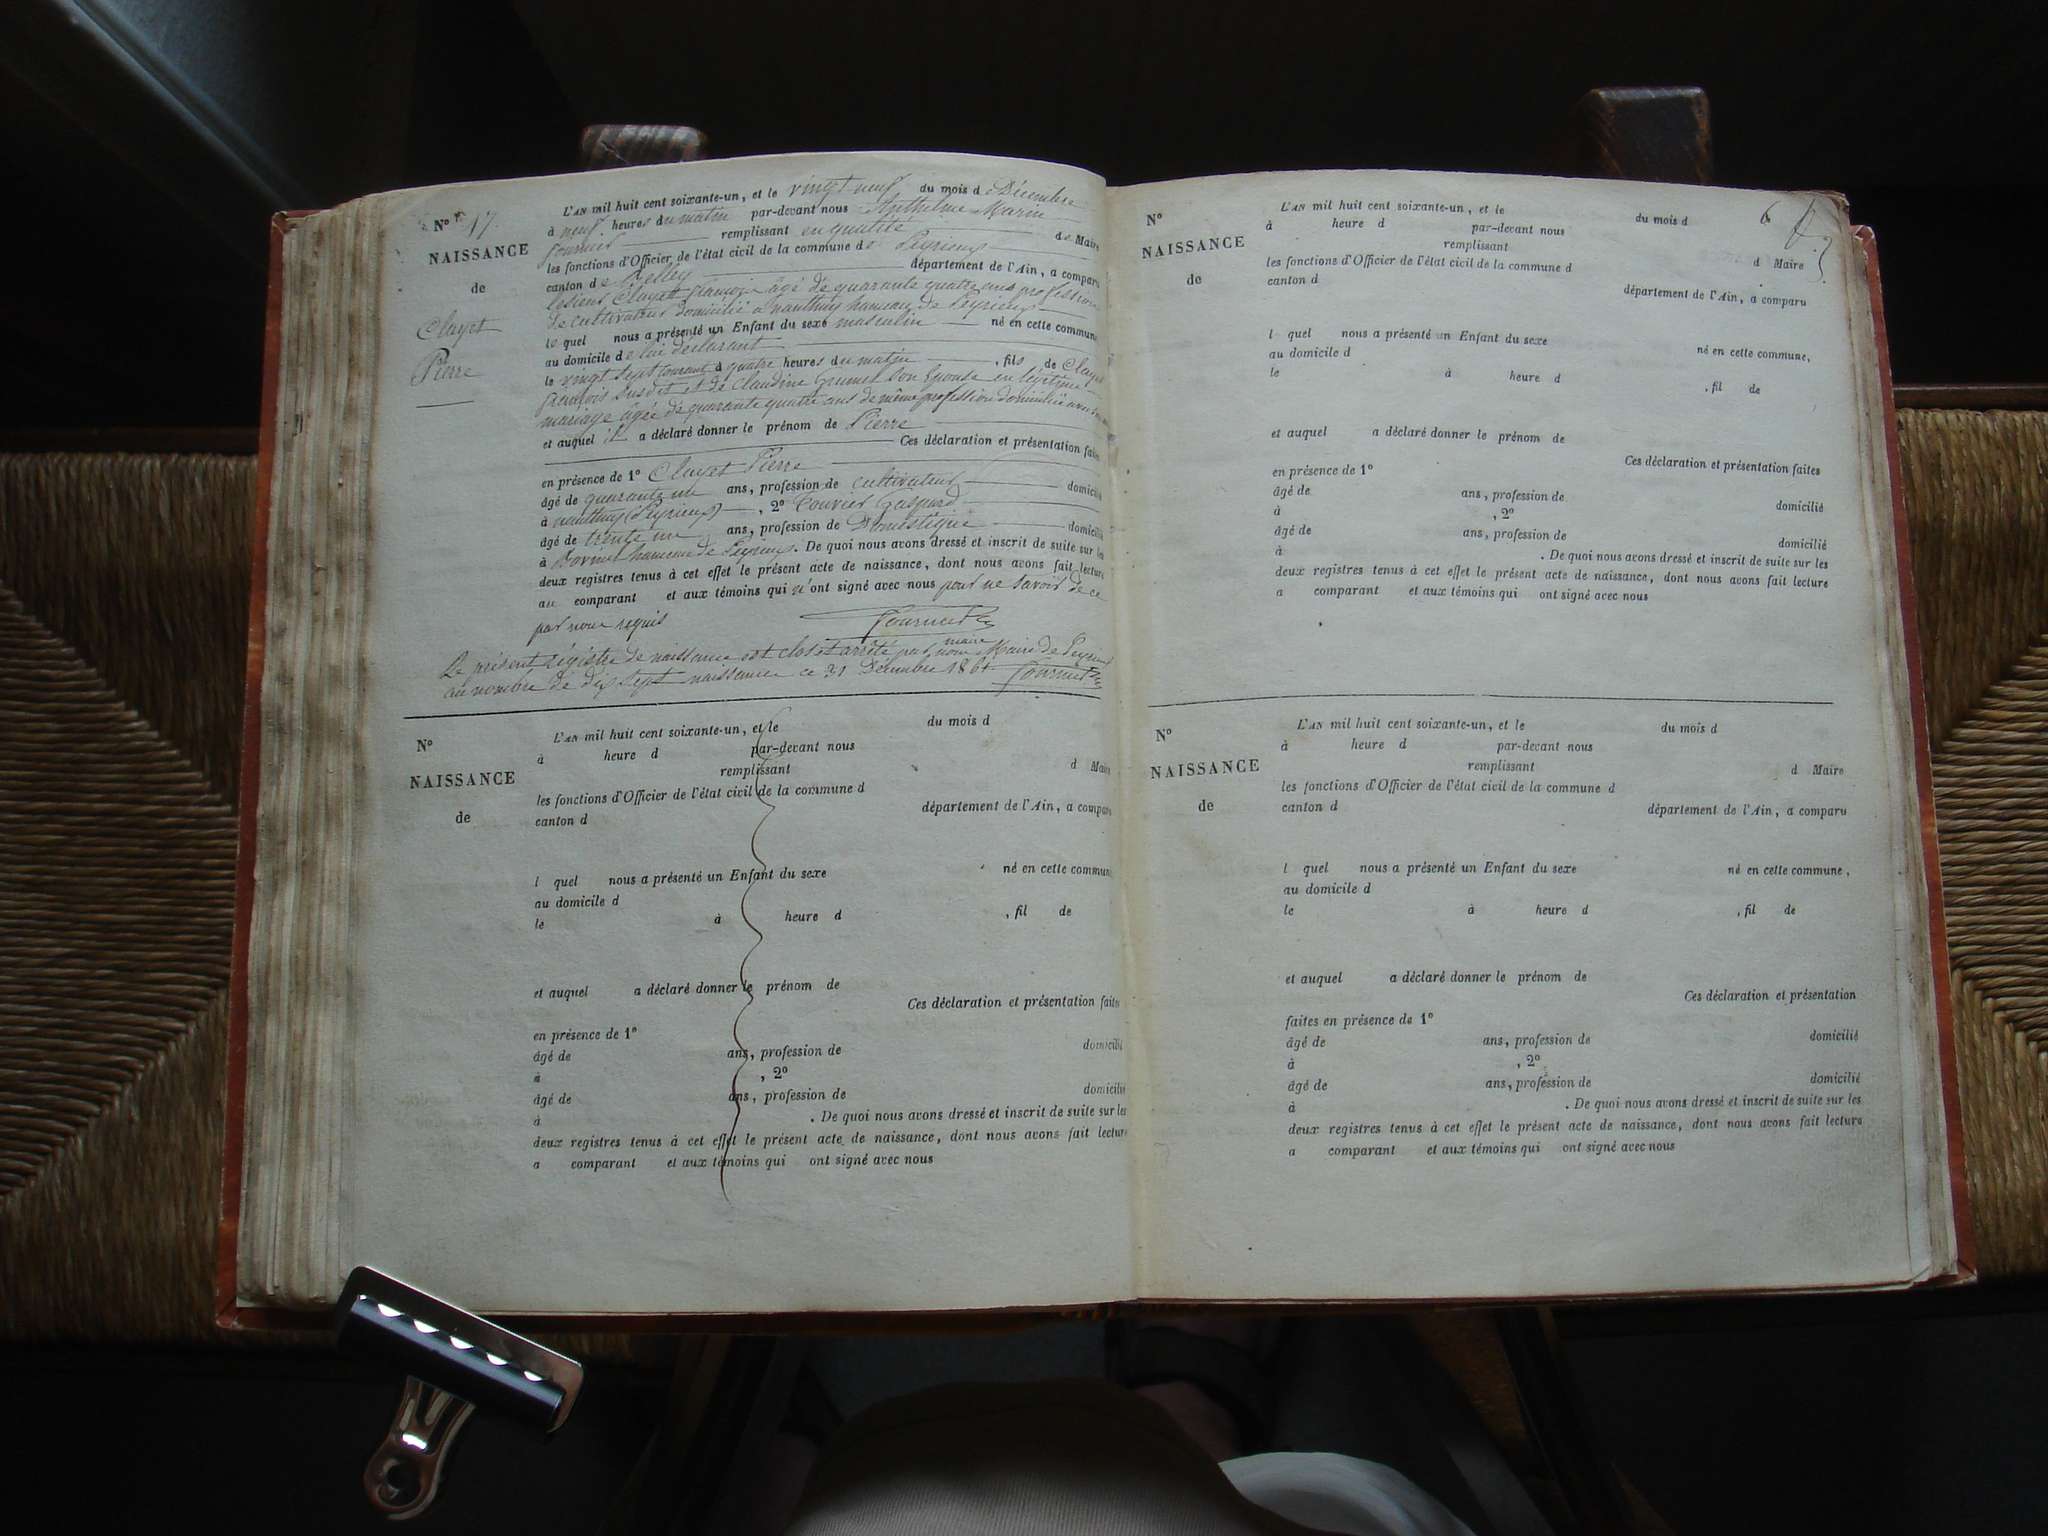 N° 17.
NAISSANCE
de
Clayet
Pierre
L'AN mil huit cent soixante-un, et le vingt neuf du mois de Décembre
à neuf heures du matin par-devant nous Anthelme Marin
fournier remplissant en qualité de Maire
les fonctions d'Officier de l'état civil de la commune de Peyrieux
canton de Belley département de l'Ain, a comparu
le sieur Clayet françois âgé de quarante quatre ans profession
de cultivateur domicilié à nanthuy hameau de Peyrieux
lequel nous a présenté un Enfant du sexe masculin né en cette commune
au domicile de lui déclarant
le vingt sept courant à quatre heures du matin, fils de Clayet
françois susdit et de Claudine son épouse en légitime
mariage âgée de quarante quatre ans de même profession domiciliée avec
et auquel il a déclaré donner le prénom de Pierre
Ces déclaration et présentation faites
en présence de 1° Clayet Pierre
âgé de quarante un ans, profession de cultivateur domicilié
à nanthuy (Peyrieux), 2° Bouvier Gaspard
âgé de trente un ans, profession de Domestique domicilié
à hameau de Peyrieux. De quoi nous avons dressé et inscrit de suite sur les
deux registres tenus à cet effet le présent acte de naissance, dont nous avons fait lecture
au comparant et aux témoins qui n'ont signé avec nous pour ne savoir de ce
par nous requis
fournier
Le présent régistre de naissance est clos et arrêté par nous maire Maire de Peyrieux
au nombre de dix sept naissances ce 31 Décembre 1861 fournier
N°
NAISSANCE
de
L'AN mil huit cent soixante-un, et le du mois d
à heure d par-devant nous
remplissant d Maire
les fonctions d'Officier de l'état civil de la commune d
canton d département de l'Ain, a comparu
l quel nous a présenté un Enfant du sexe né en cette commune
au domicile d
le à heure d , fil de
et auquel a déclaré donner le prénom de
Ces déclaration et présentation faites
en présence de 1°
âgé de ans, profession de domicilié
à , 2°
âgé de ans, profession de domicilié
à . De quoi nous avons dressé et inscrit de suite sur les
deux registres tenus à cet effet le présent acte de naissance, dont nous avons fait lecture
a comparant et aux témoins qui ont signé avec nous
6
N°
NAISSANCE
de
L'AN mil huit cent soixante-un, et le du mois d
à heure d par-devant nous
remplissant d Maire
les fonctions d'Officier de l'état civil de la commune d
canton d département de l'Ain, a comparu
l quel nous a présenté un Enfant du sexe né en cette commune,
au domicile d
le à heure d , fil de
et auquel a déclaré donner le prénom de
Ces déclaration et présentation faites
en présence de 1°
âgé de ans, profession de domicilié
à , 2°
âgé de ans, profession de domicilié
à . De quoi nous avons dressé et inscrit de suite sur les
deux registres tenus à cet effet le présent acte de naissance, dont nous avons fait lecture
a comparant et aux témoins qui ont signé avec nous
N°
NAISSANCE
de
L'AN mil huit cent soixante-un, et le du mois d
à heure d par-devant nous
remplissant d Maire
les fonctions d'Officier de l'état civil de la commune d
canton d département de l'Ain, a comparu
l quel nous a présenté un Enfant du sexe né en cette commune,
au domicile d
le à heure d , fil de
et auquel a déclaré donner le prénom de
Ces déclaration et présentation
faites en présence de 1°
âgé de ans, profession de domicilié
à , 2°
âgé de ans, profession de domicilié
à . De quoi nous avons dressé et inscrit de suite sur les
deux registres tenus à cet effet le présent acte de naissance, dont nous avons fait lecture
a comparant et aux témoins qui ont signé avec nous